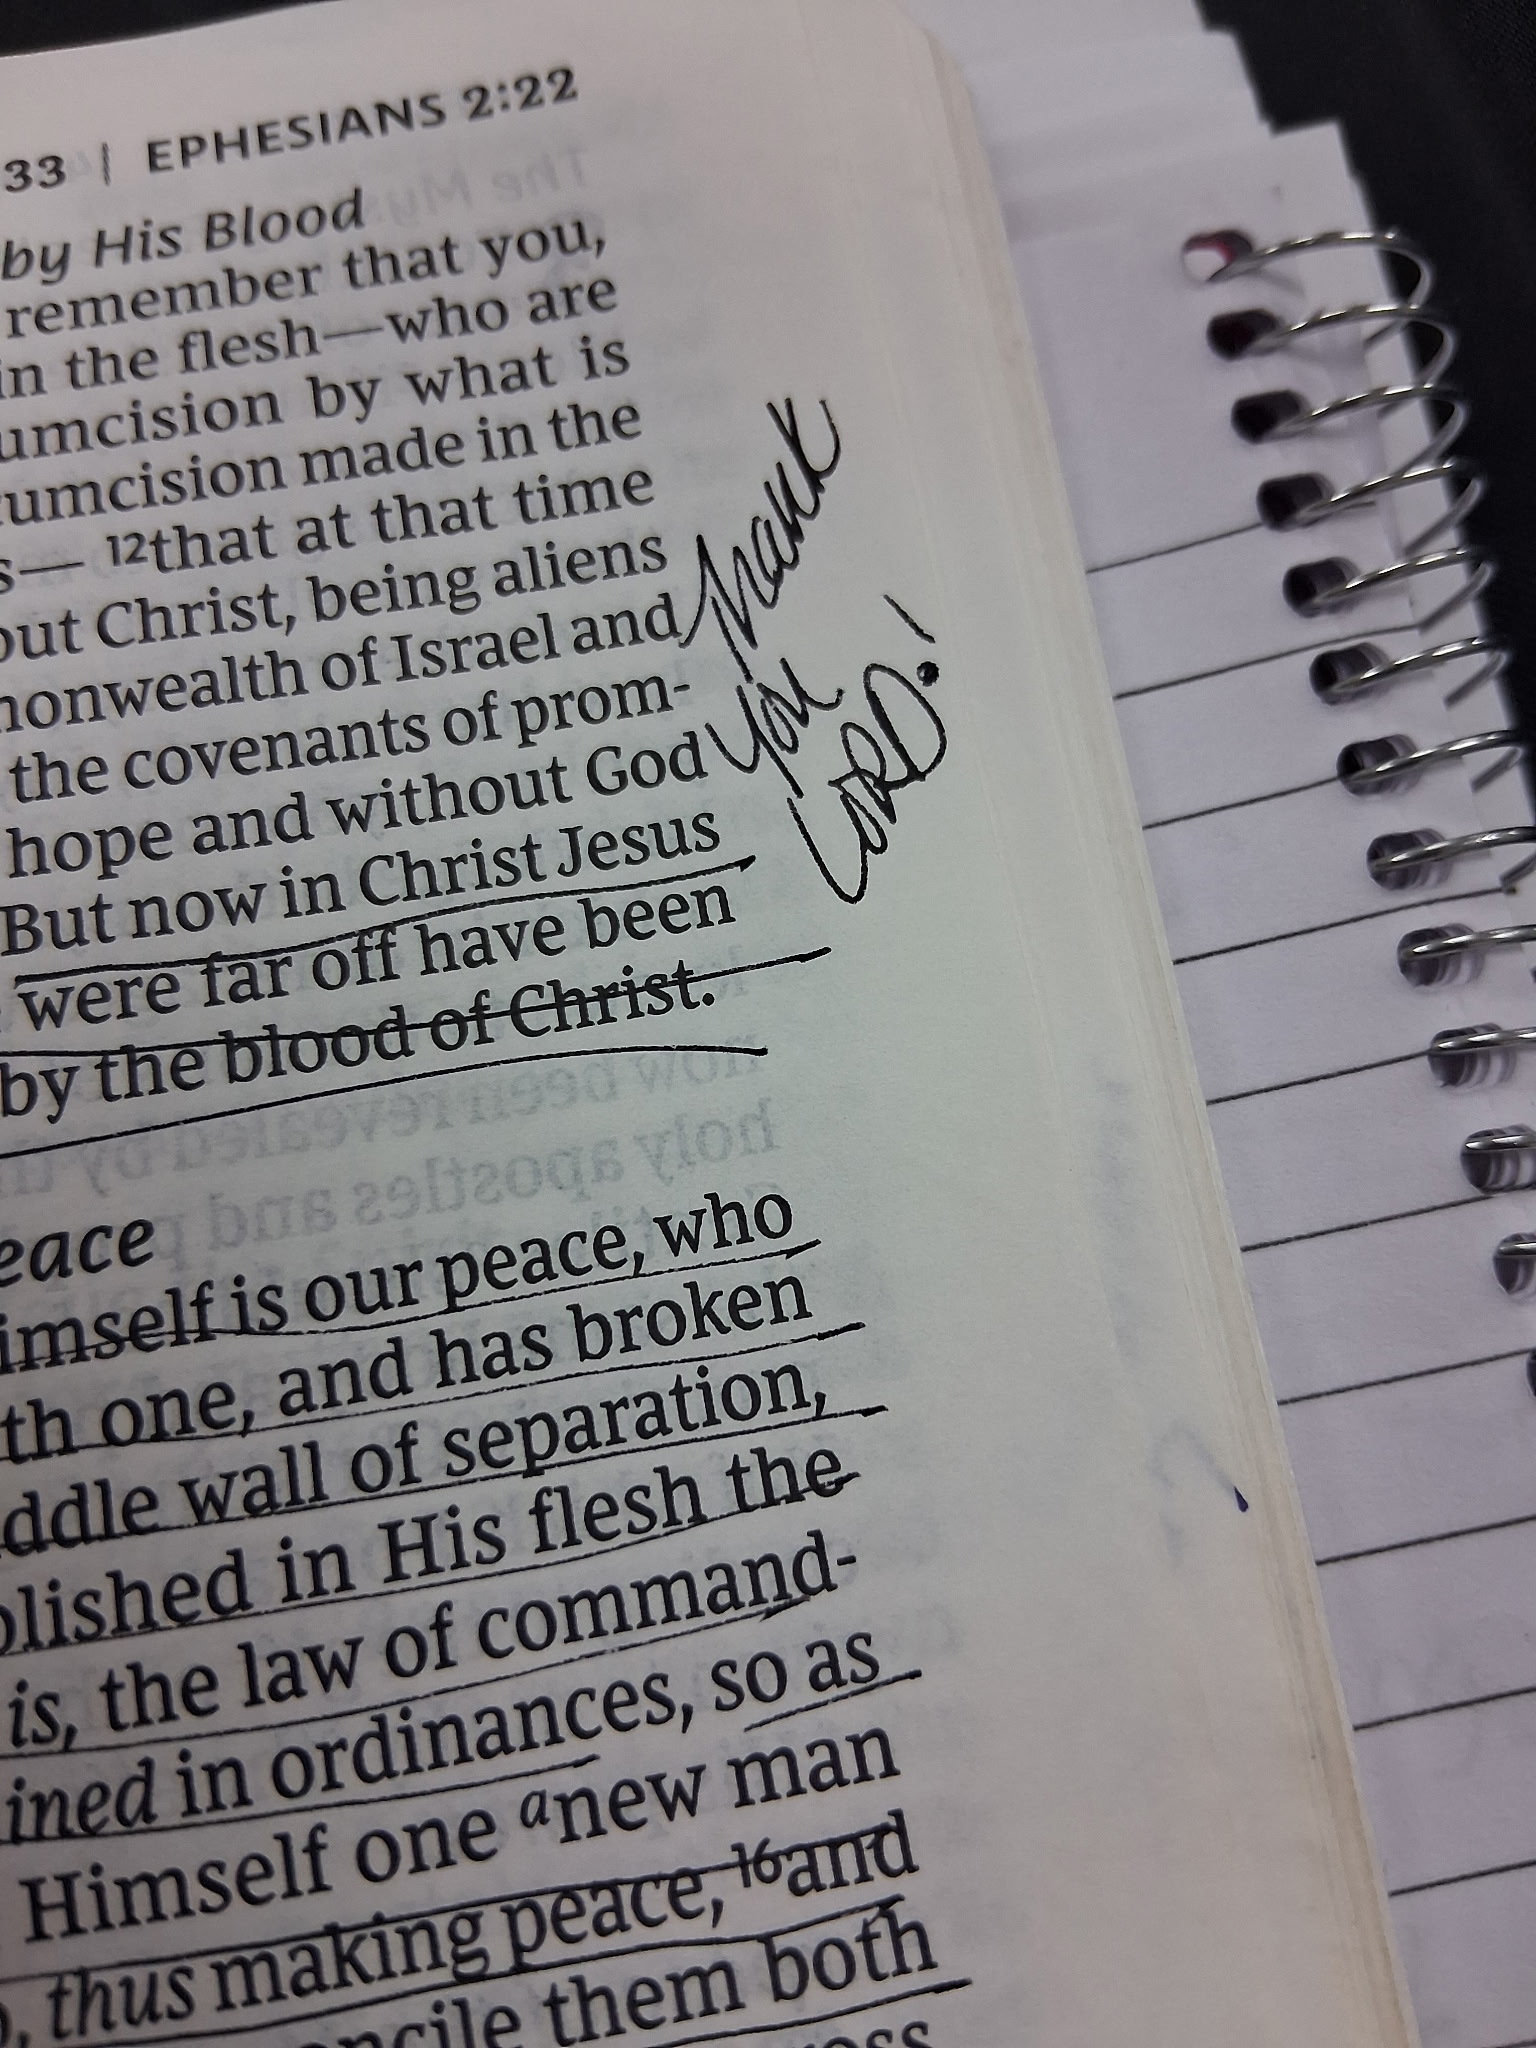 33 | EPHESIANS 2:22
by His Blood
remember that you,
in the flesh—who are
umcision by what is
cumcision made in the
s— 12that at that time
out Christ, being aliens
monwealth of Israel and
the covenants of prom-
hope and without God
But now in Christ Jesus
were far off have been
by the blood of Christ.
Thank
You
LORD!
eace
imself is our peace, who
th one, and has broken
ddle wall of separation,
olished in His flesh the
is, the law of command-
ined in ordinances, so as
Himself one a new man
, thus making peace, 16and
ncile them both
ross